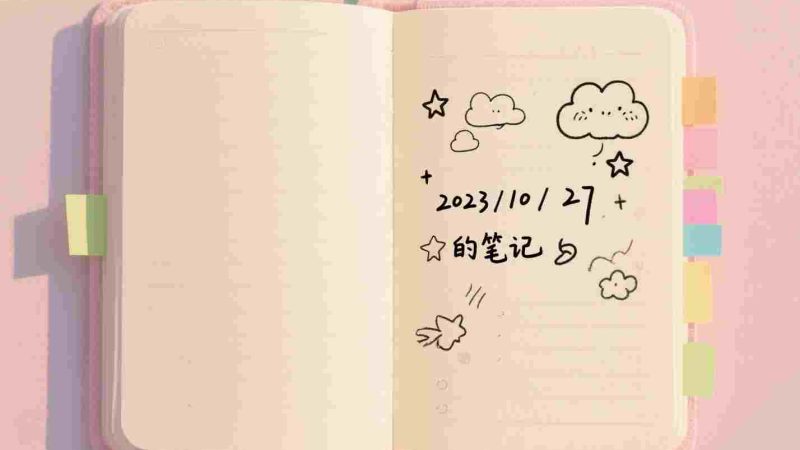 2023/10/27
的笔记